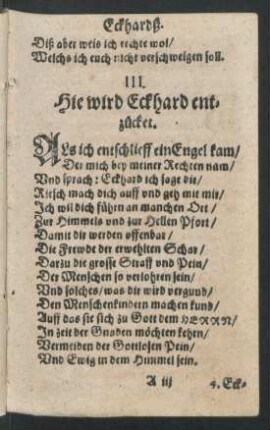 Eckhardß.
Diß aber weis ich rechte wol/
Welchs ich euch nicht verschweigen soll.
III.
Hie wird Eckhard ent-
zücket.
ALs ich entschlieff ein Engel kam/
Der mich bey meiner Rechten nam/
Vnd sprach: Eckhard ich sage dir/
Risch mach dich auff vnd geh mit mir/
Ich wil dich führn an manchen Ort/
Zur Himmels vnd zur Hellen Pfort/
Damit dir werden offenbar/
Die Frewde der erwehlten Schar/
Darzu die grosse Straff vnd Pein/
Der Menschen so verlohren sein/
Vnd solches/ was dir wird vergund/
Den Menschenkindern machen kund/
Auff das sie sich zu Gott dem HERRN/
In zeit der Gnaden möchten kehrn/
Vermeiden der Gottlosen Pein/
Vnd Ewig in dem Himmel sein.
A iij
4. Eck-